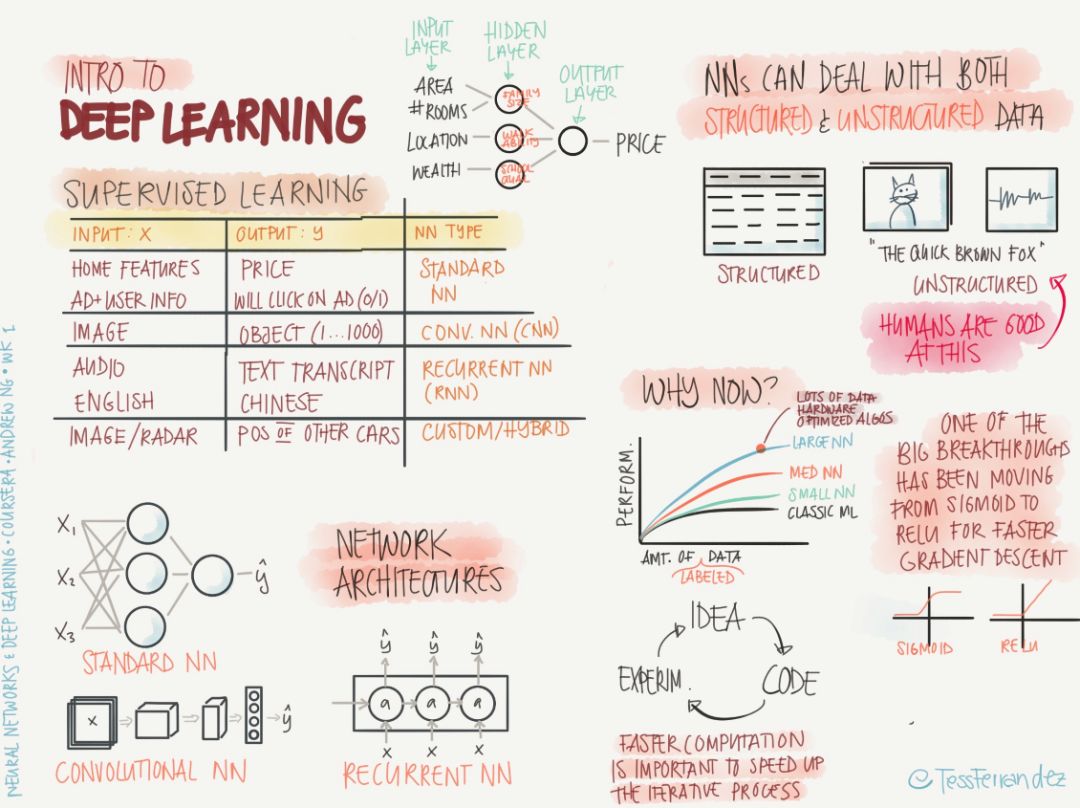 INTRO TO
DEEP LEARNING
INPUT LAYER
HIDDEN LAYER
OUTPUT LAYER
AREA
#ROOMS
LOCATION
WEALTH
FAMILY SIZE
WALK ABILITY
SCHOOL QUAL
PRICE
SUPERVISED LEARNING
INPUT: X OUTPUT: y NN TYPE
HOME FEATURES PRICE STANDARD
AD+USER INFO WILL CLICK ON AD (0/1) NN
IMAGE OBJECT (1...1000) CONV. NN (CNN)
AUDIO TEXT TRANSCRIPT RECURRENT NN
ENGLISH CHINESE (RNN)
IMAGE/RADAR POS OF OTHER CARS CUSTOM/HYBRID
X1
X2
X3
ŷ
STANDARD NN
X
ŷ
CONVOLUTIONAL NN
NETWORK
ARCHITECTURES
ŷ ŷ ŷ
a a a
X X X
RECURRENT NN
NNs CAN DEAL WITH BOTH
STRUCTURED & UNSTRUCTURED DATA
STRUCTURED
"THE QUICK BROWN FOX"
UNSTRUCTURED
HUMANS ARE GOOD
AT THIS
WHY NOW?
LOTS OF DATA
HARDWARE
OPTIMIZED ALGOS
LARGE NN
MED NN
SMALL NN
CLASSIC ML
PERFORM.
AMT. OF DATA
LABELED
ONE OF THE
BIG BREAKTHROUGHS
HAS BEEN MOVING
FROM SIGMOID TO
RELU FOR FASTER
GRADIENT DESCENT
SIGMOID
RELU
IDEA
CODE
EXPERIM.
FASTER COMPUTATION
IS IMPORTANT TO SPEED UP
THE ITERATIVE PROCESS
@TessFerrandez
NEURAL NETWORKS & DEEP LEARNING • COURSERA • ANDREW NG • WK 1